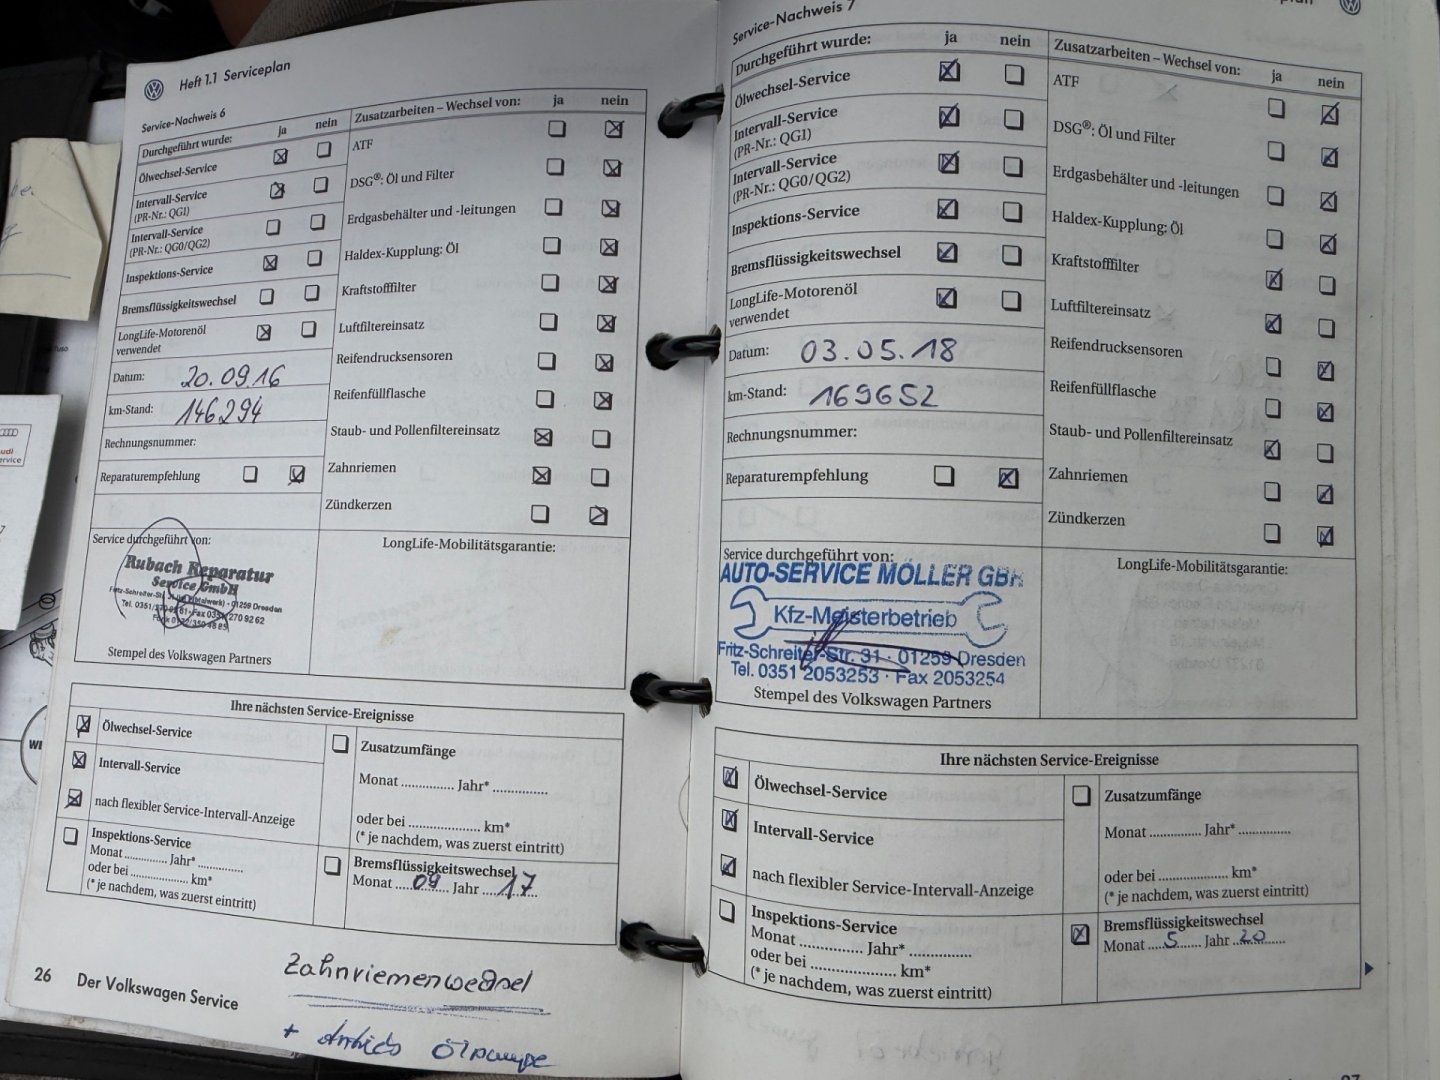 Heft 1.1 Serviceplan
Service-Nachweis 6
Durchgeführt wurde: ja nein
Ölwechsel-Service
Intervall-Service
(PR-Nr.: QG1)
Intervall-Service
(PR-Nr.: QG0/QG2)
Inspektions-Service
Bremsflüssigkeitswechsel
LongLife-Motorenöl
verwendet
Datum: 20.09.16
km-Stand: 146294
Rechnungsnummer:
Reparaturempfehlung
Zusatzarbeiten – Wechsel von: ja nein
ATF
DSG®: Öl und Filter
Erdgasbehälter und -leitungen
Haldex-Kupplung: Öl
Kraftstofffilter
Luftfiltereinsatz
Reifendrucksensoren
Reifenfüllflasche
Staub- und Pollenfiltereinsatz
Zahnriemen
Zündkerzen
Service durchgeführt von:
Rubach Reparatur
Service GmbH
Fritz-Schreiter-Str. 01259 Dresden
Tel. 0351/270 Fax 0351/270 92 62
Stempel des Volkswagen Partners
LongLife-Mobilitätsgarantie:
Ihre nächsten Service-Ereignisse
Ölwechsel-Service
Intervall-Service
nach flexibler Service-Intervall-Anzeige
Inspektions-Service
Monat ............. Jahr* .............
oder bei ..................... km*
(* je nachdem, was zuerst eintritt)
Zusatzumfänge
Monat ............. Jahr* .............
oder bei ..................... km*
(* je nachdem, was zuerst eintritt)
Bremsflüssigkeitswechsel
Monat 09 Jahr 17
26 Der Volkswagen Service
Zahnriemenwechsel
+ Antrieb Ölpumpe
Service-Nachweis 7
Durchgeführt wurde: ja nein
Ölwechsel-Service
Intervall-Service
(PR-Nr.: QG1)
Intervall-Service
(PR-Nr.: QG0/QG2)
Inspektions-Service
Bremsflüssigkeitswechsel
LongLife-Motorenöl
verwendet
Datum: 03.05.18
km-Stand: 169652
Rechnungsnummer:
Reparaturempfehlung
Zusatzarbeiten – Wechsel von: ja nein
ATF
DSG®: Öl und Filter
Erdgasbehälter und -leitungen
Haldex-Kupplung: Öl
Kraftstofffilter
Luftfiltereinsatz
Reifendrucksensoren
Reifenfüllflasche
Staub- und Pollenfiltereinsatz
Zahnriemen
Zündkerzen
Service durchgeführt von:
AUTO-SERVICE MÖLLER GBR
Kfz-Meisterbetrieb
Fritz-Schreiter-Str. 31 · 01259 Dresden
Tel. 0351 2053253 · Fax 2053254
Stempel des Volkswagen Partners
LongLife-Mobilitätsgarantie:
Ihre nächsten Service-Ereignisse
Ölwechsel-Service
Intervall-Service
nach flexibler Service-Intervall-Anzeige
Inspektions-Service
Monat ............. Jahr* .............
oder bei ..................... km*
(* je nachdem, was zuerst eintritt)
Zusatzumfänge
Monat ............. Jahr* .............
oder bei ..................... km*
(* je nachdem, was zuerst eintritt)
Bremsflüssigkeitswechsel
Monat 5 Jahr 20